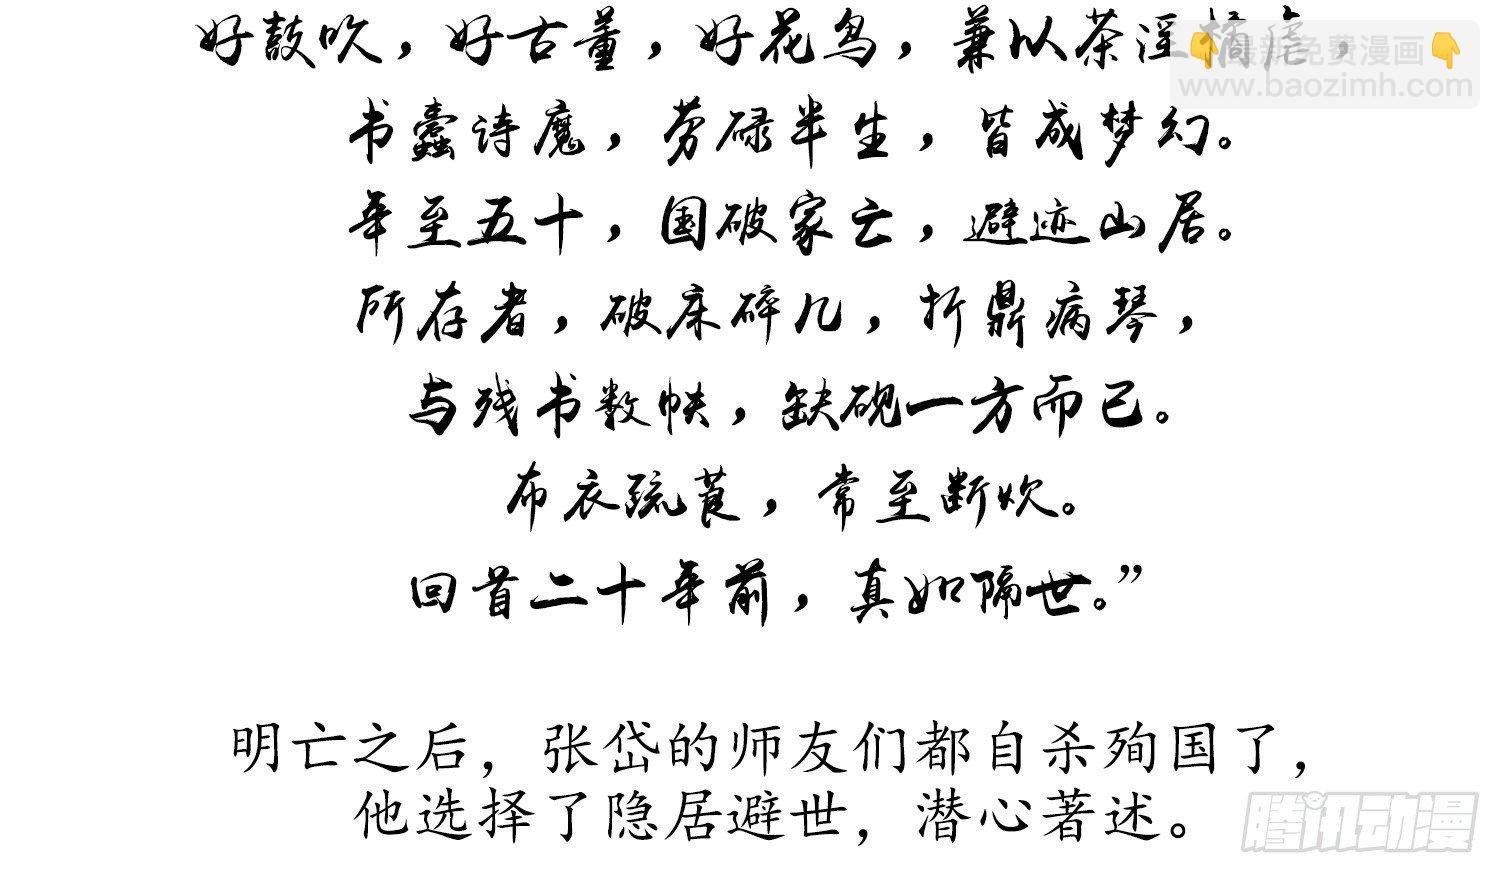 好鼓吹，好古董，好花鸟，兼以茶淫橘虐，
最新免费漫画
www.baozimh.com
书蠹诗魔，劳碌半生，皆成梦幻。
年至五十，国破家亡，避迹山居。
所存者，破床碎几，折鼎病琴，
与残书数帙，缺砚一方而已。
布衣疏莨，常至断炊。
回首二十年前，真如隔世。”
明亡之后，张岱的师友们都自杀殉国了，
他选择了隐居避世，潜心著述。
腾讯动漫